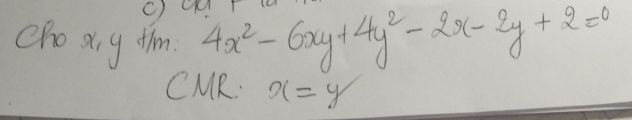 c)
Cho x, y t/m: 4x² - 6xy + 4y² - 2x - 2y + 2 = 0
CMR: x = y